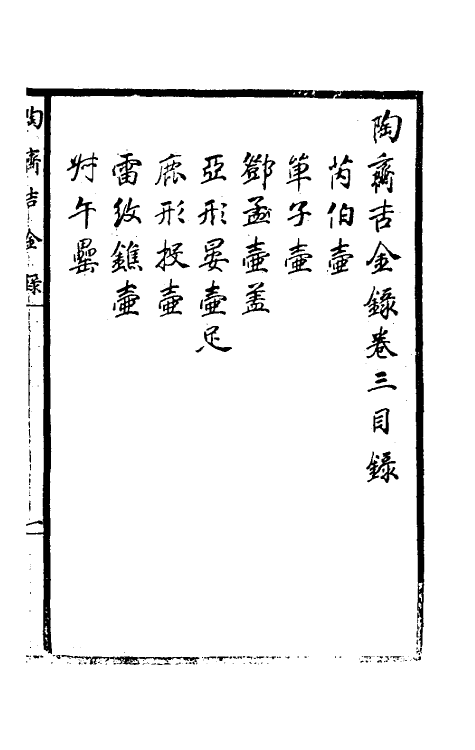 陶齋吉金錄卷三目錄
芮伯壺
單子壺
鄧孟壺蓋
亞形晏壺足
鹿形投壺
雷紋鐎壺
午罍
陶齋吉金錄